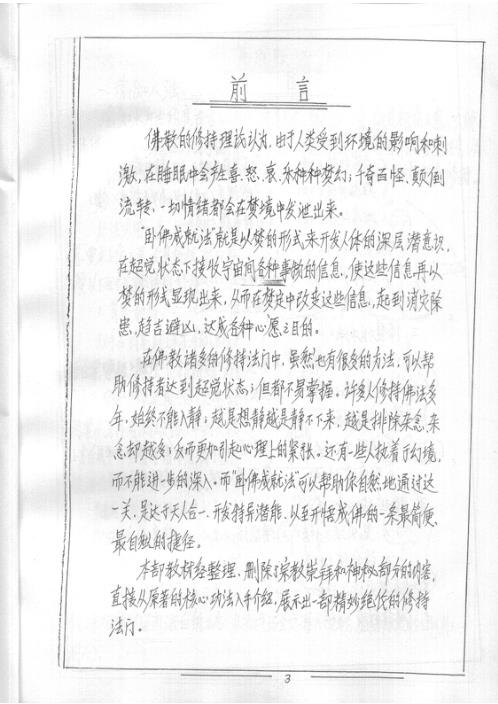 前 言
佛教的修持理论认为，由于人类受到环境的影响和刺
激，在睡眠中会产生喜、怒、哀、乐种种梦幻；千奇百怪、颠倒
流转、一切情绪都会在梦境中发泄出来。
“卧佛成就法”就是以梦的形式来开发人体的深层潜意识，
在超觉状态下接收宇宙间各种事物的信息，使这些信息再以
梦的形式显现出来，从而在梦境中改变这些信息，起到消灾除
患，趋吉避凶，达成各种心愿之目的。
在佛教诸多的修持法门中，虽然也有很多的方法，可以帮
助修持者达到超觉状态；但都不易掌握。许多人修持佛法多
年，始终不能入静；越是想静越是静不下来，越是排除杂念，杂
念却越多；反而更加引起心理上的紧张。还有一些人执着于幻境，
而不能进一步的深入。而“卧佛成就法”可以帮助你自然地通过这
一关，是达于天人合一、开发特异潜能、以至开悟成佛的一条最简便、
最自然的捷径。
本部教材经整理、删除了宗教崇拜和神秘部分的内容，
直接从原著的核心功法入手介绍，展示出一部精妙绝伦的修持
法门。
3